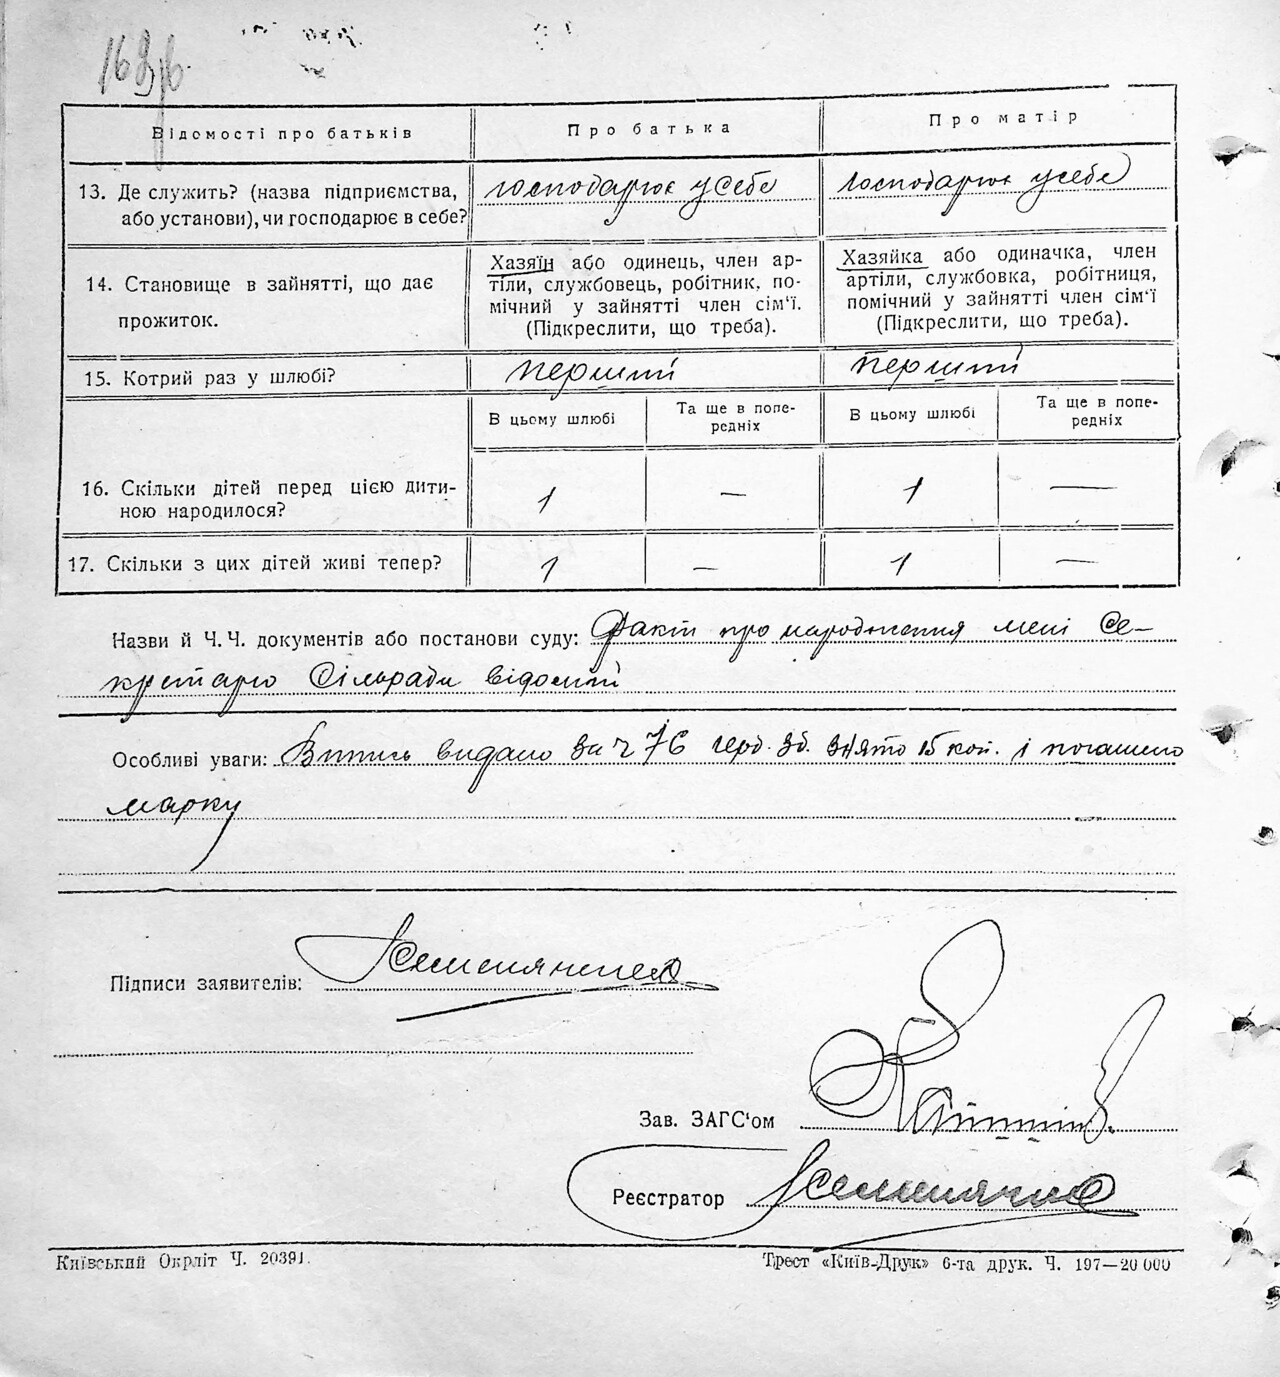 Відомості про батьків
Про батька
Про матір
13. Де служить? (назва підприємства,
або установи), чи господарює в себе?
господарює у себе
господарює у себе
14. Становище в зайнятті, що дає
прожиток.
Хазяїн або одинець, член ар-
тіли, службовець, робітник, по-
мічний у зайнятті член сім'ї.
(Підкреслити, що треба).
Хазяйка або одиначка, член
артіли, службовка, робітниця,
помічний у зайнятті член сім'ї
(Підкреслити, що треба).
15. Котрий раз у шлюбі?
перший
перший
В цьому шлюбі
Та ще в попе-
редніх
В цьому шлюбі
Та ще в попе-
редніх
16. Скільки дітей перед цією дити-
ною народилося?
1
—
1
—
17. Скільки з цих дітей живі тепер?
1
—
1
—
Назви й Ч.Ч. документів або постанови суду: Факт про народження мені се-
кретарю Сільради відомий
Особливі уваги: Випись видано за ч 76 герб. зб. знято 15 коп. і погашено
марку
Підписи заявителів:
Зав. ЗАГС'ом
Реєстратор
Київський Окрліт Ч. 20391.
Трест «Київ-Друк» 6-та друк. Ч. 197—20 000